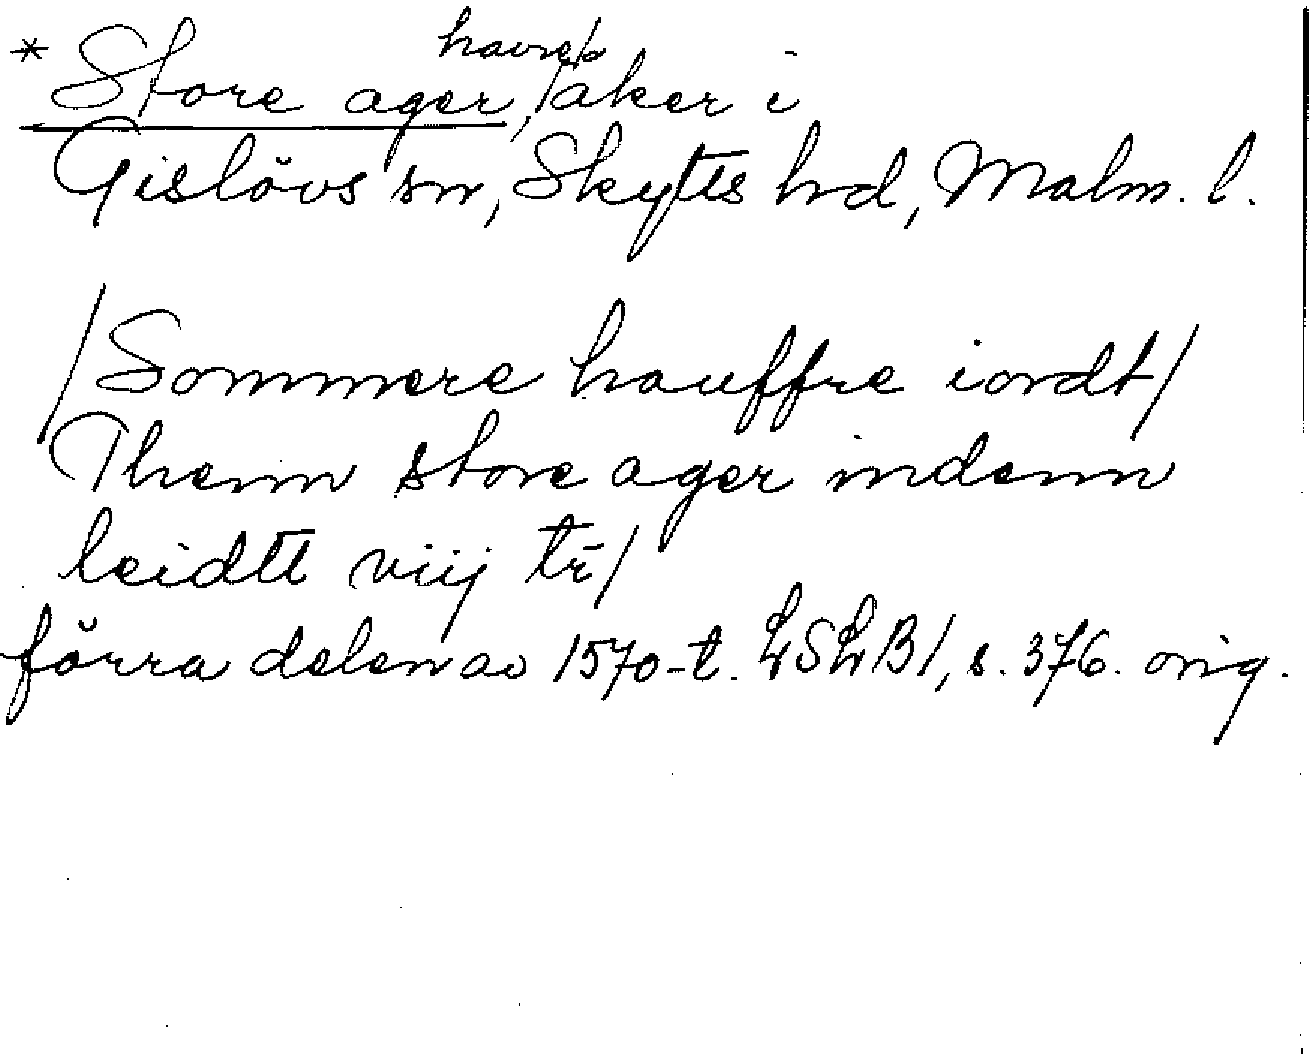 * Store ager, havre/åker i
Gislövs sn, Skytts hd, Malm. l.
/Sommere hauffre iordt/
Thenn store ager indenn
leidtt viij tr̄/
förra delen av 1570-t. LSLB 1, s. 376. orig.